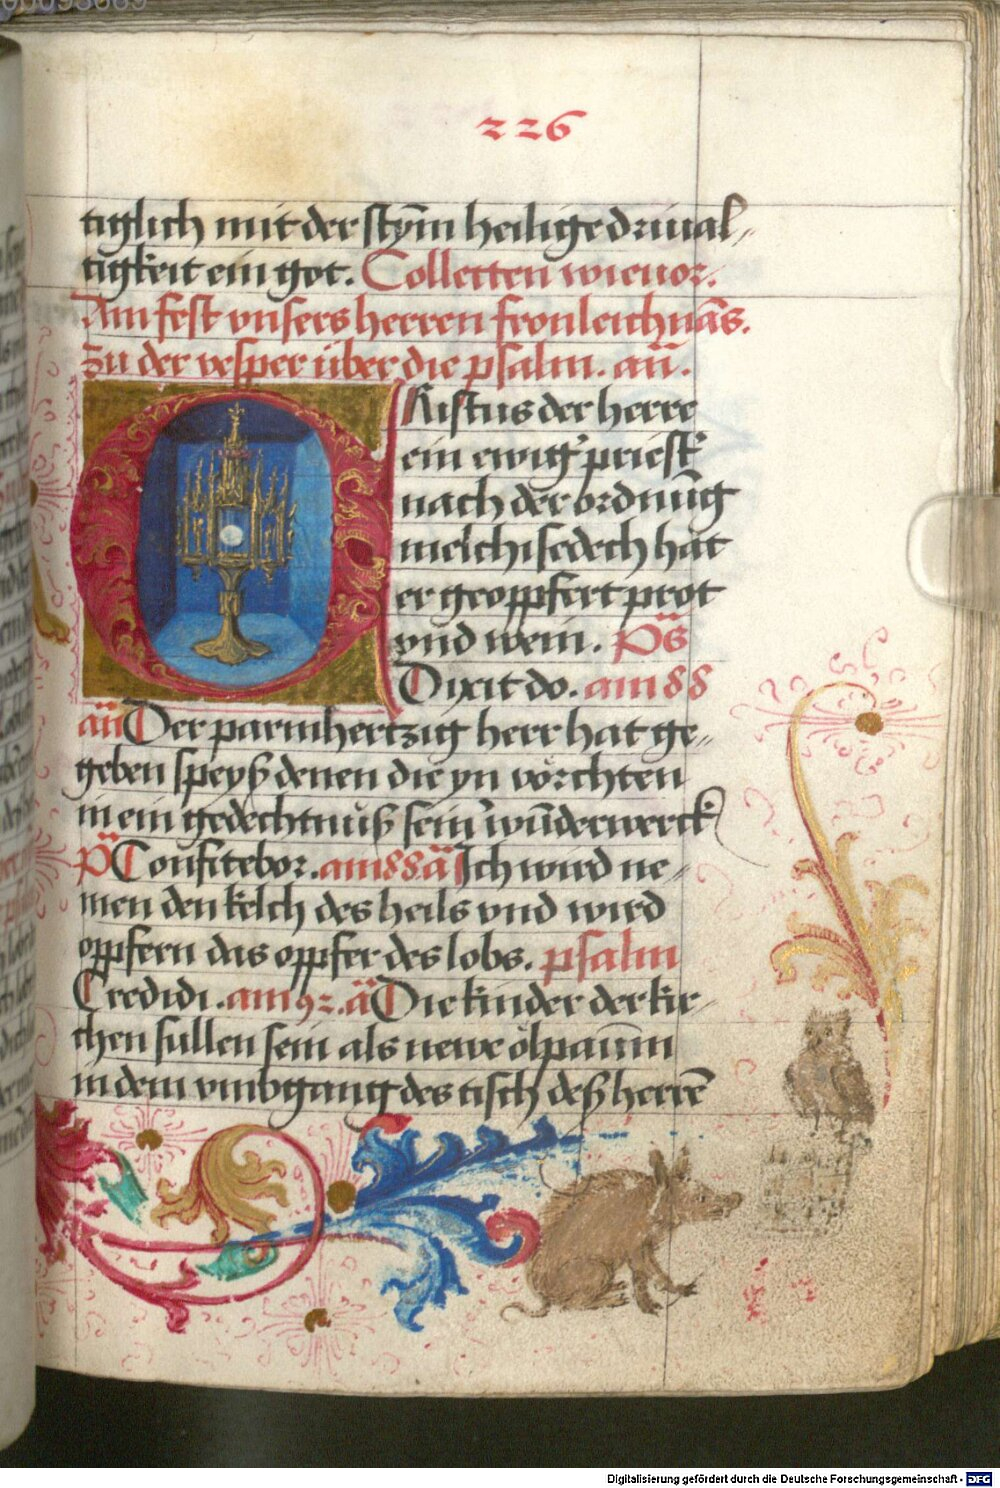 226
tiglich mit der stym̄ heilige driual„
tigkeit ein got. Collecten wie uor.
Am fest vnsers herren fronleichnā̄s.
zu der vesper über die psalm. an̄.
Kristus der herre
ein ewig᷑ priest᷑
nach der ordnūg
melchisedech hat
er geoppfert prot
vnd wein. Ps̄
Dixit do. am 88
an̄ Der parmhertzig herr hat ge„
geben speyß denen die yn vörchten
in ein gedechtnuß sein᷑ wūderwerck
Ps̄ Confitebor. am 88 ā Ich wird ne„
men den kelch des heils vnd wird
oppfern das oppfer des lobs. psalm
Credidi. am 92. ā Die kinder der kir„
chen sullen sein als newe ölpaūm
in dem vmbgang des tisch deß herrē
Digitalisierung gefördert durch die Deutsche Forschungsgemeinschaft - DFG